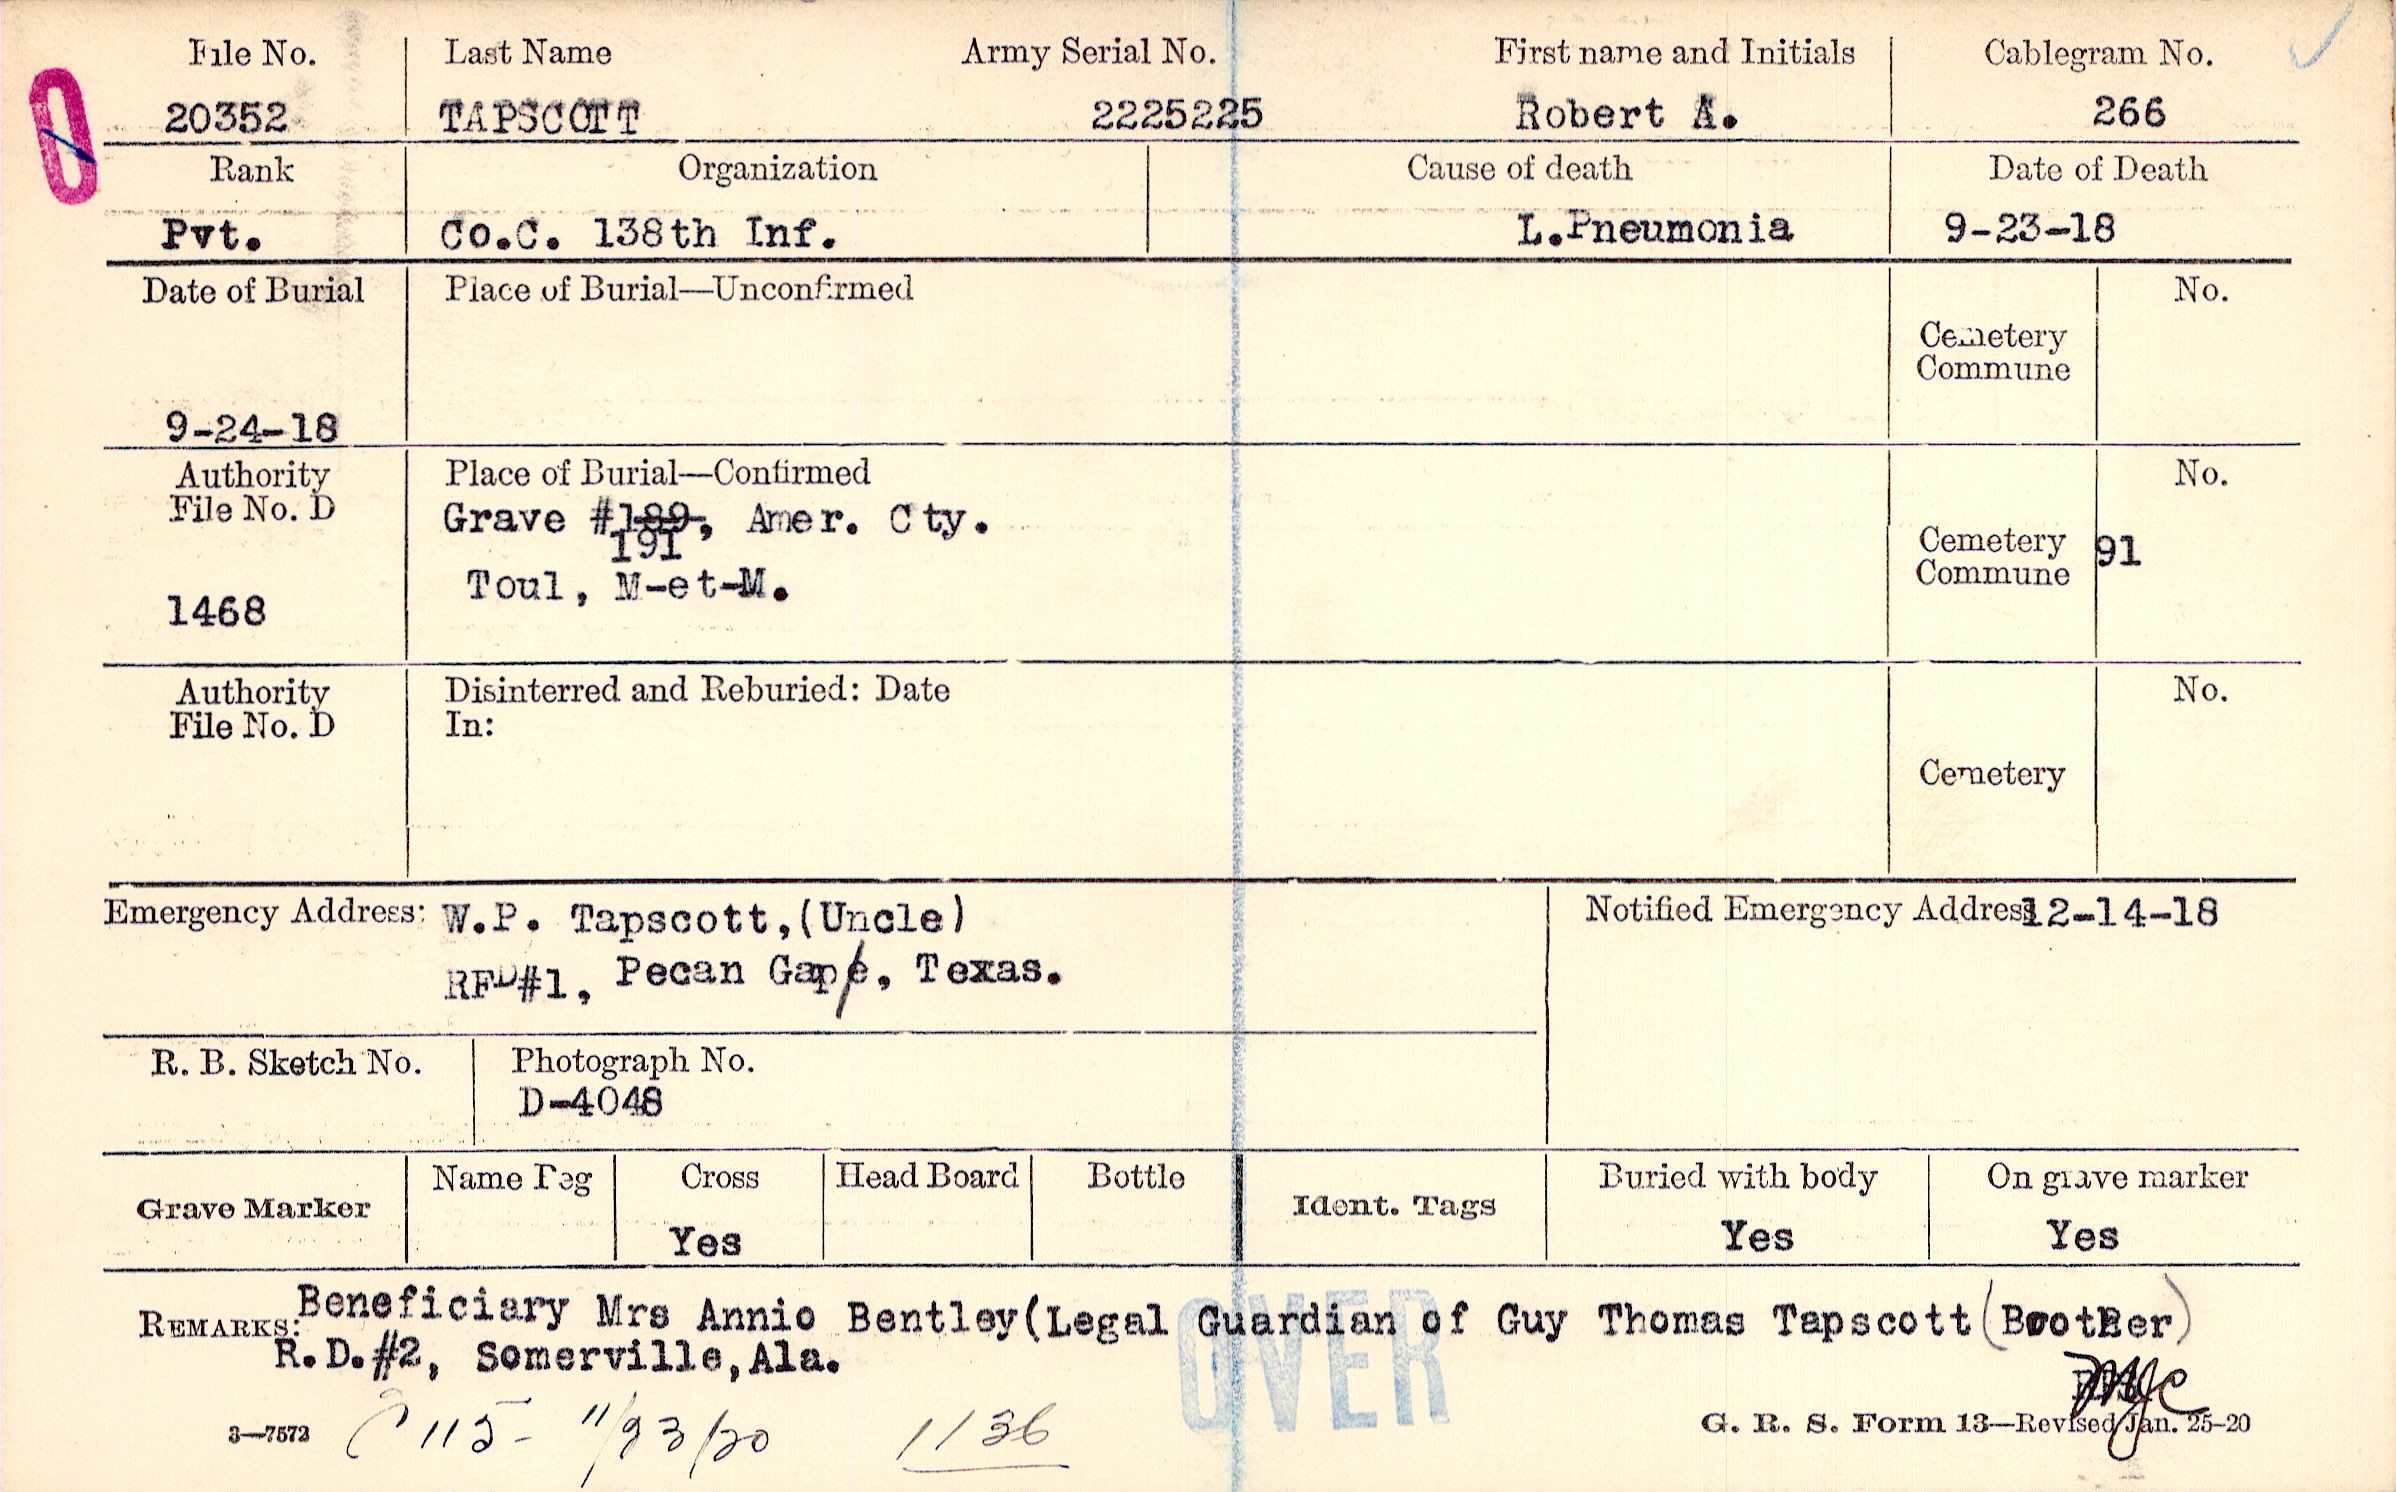 File No. Last Name Army Serial No. First name and Initials Cablegram No.
20352 TAPSCOTT 2225225 Robert A. 266
Rank Organization Cause of death Date of Death
Pvt. Co.C. 138th Inf. L.Pneumonia 9-23-18
Date of Burial Place of Burial—Unconfirmed No.
Cemetery
Commune
9-24-18
Authority Place of Burial—Confirmed No.
File No. D
Grave #189, Amer. Cty.
191
Cemetery 91
Commune
Toul, M-et-M.
1468
Authority Disinterred and Reburied: Date No.
File No. D In:
Cemetery
Emergency Address: W.P. Tapscott,(Uncle) Notified Emergency Address 12-14-18
RFD#1, Pecan Gap, Texas.
R. B. Sketch No. Photograph No.
D-4048
Grave Marker Name Peg Cross Head Board Bottle Ident. Tags Buried with body On grave marker
Yes Yes Yes
REMARKS: Beneficiary Mrs Annie Bentley(Legal Guardian of Guy Thomas Tapscott (Brother)
R.D.#2, Somerville,Ala.
OVER
3—7572 115- 11/23/20 1136 G. R. S. Form 13—Revised Jan. 25-20